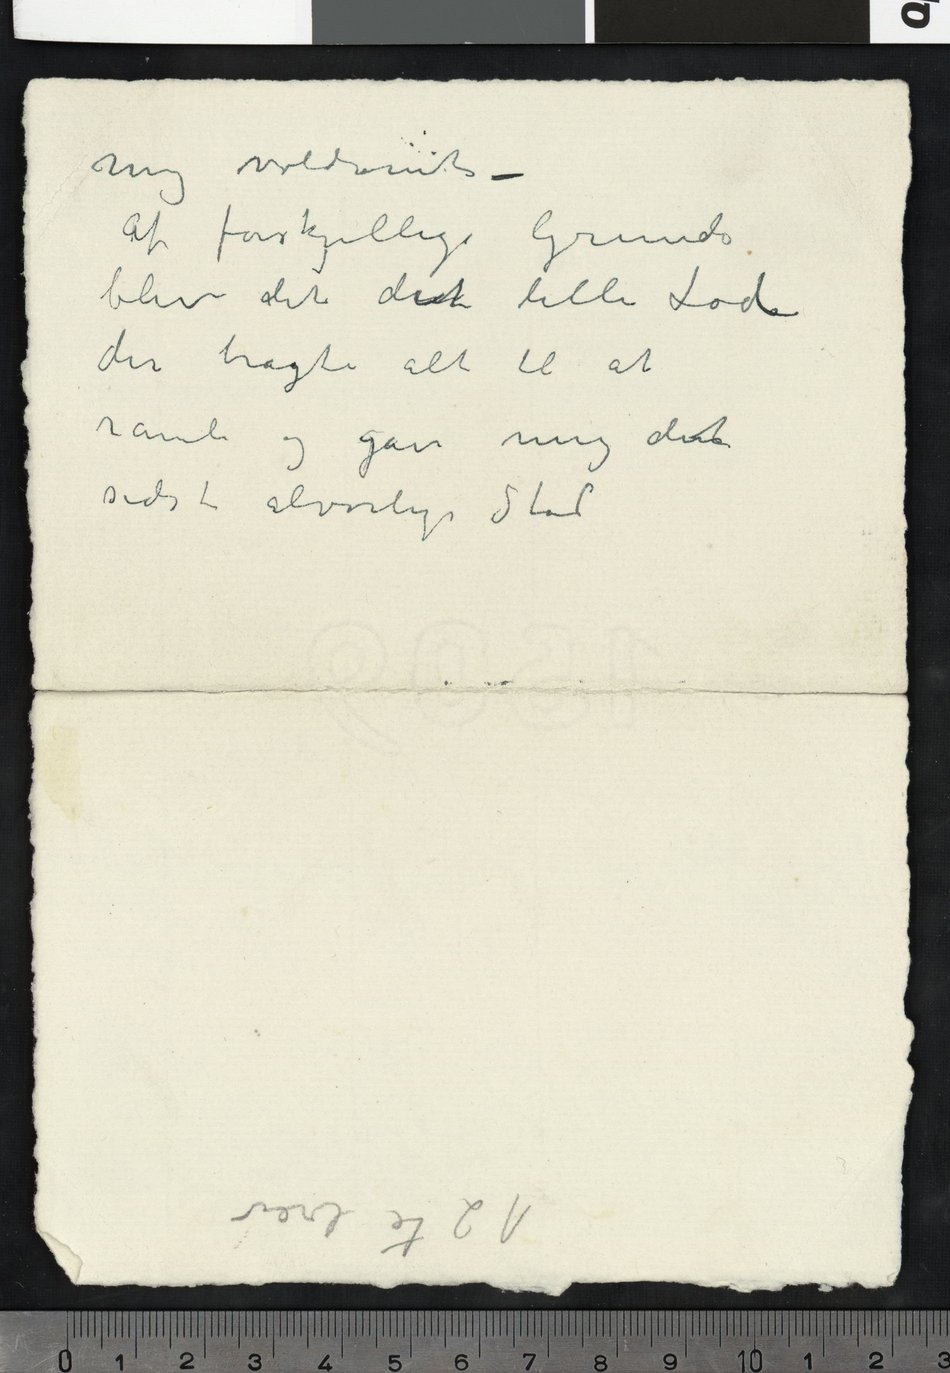 mig voldsomts –
Af forskjellige Grunde
blev det det lille Lod
der bragte alt til at
ramle og gav mig det
sidste alvorlige Stød
12te brev
0 1 2 3 4 5 6 7 8 9 10 1 2 3